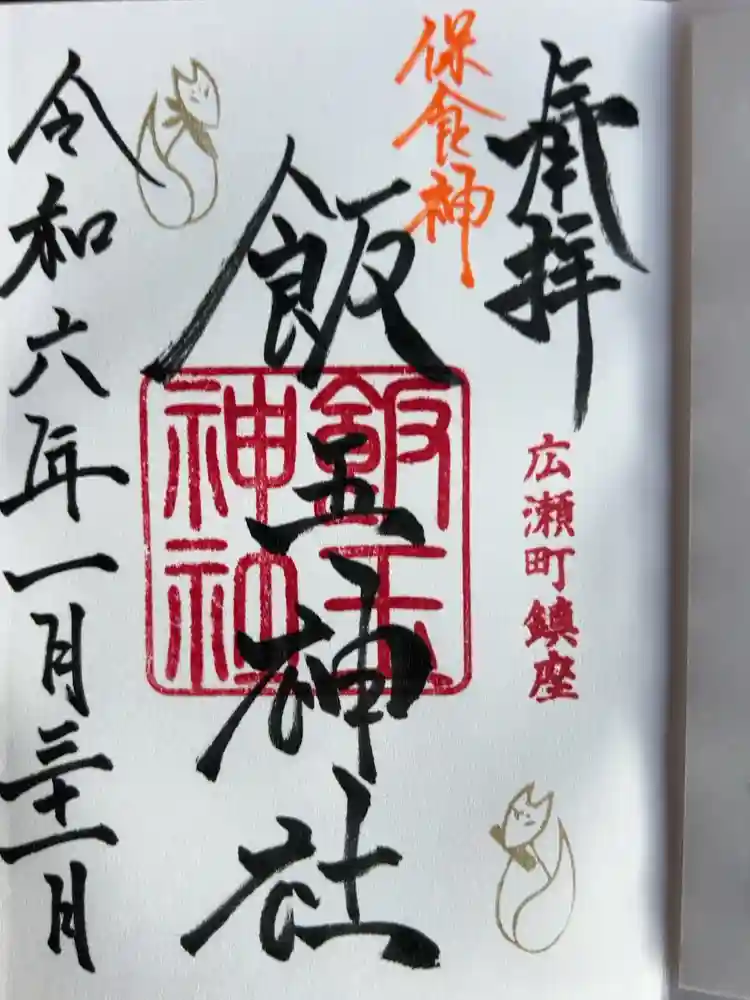 奉拝
保食神
広瀬町鎮座
飯玉神社
飯玉
神社
令和六年一月三十一日